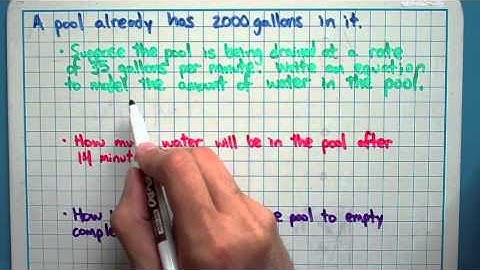 A pool already has 2000 gallons in it.
• Suppose the pool is being drained at a rate
of 35 gallons per minute. Write an equation
to model the amount of water in the pool.
• How water will be in the pool after
14
• How pool to empty